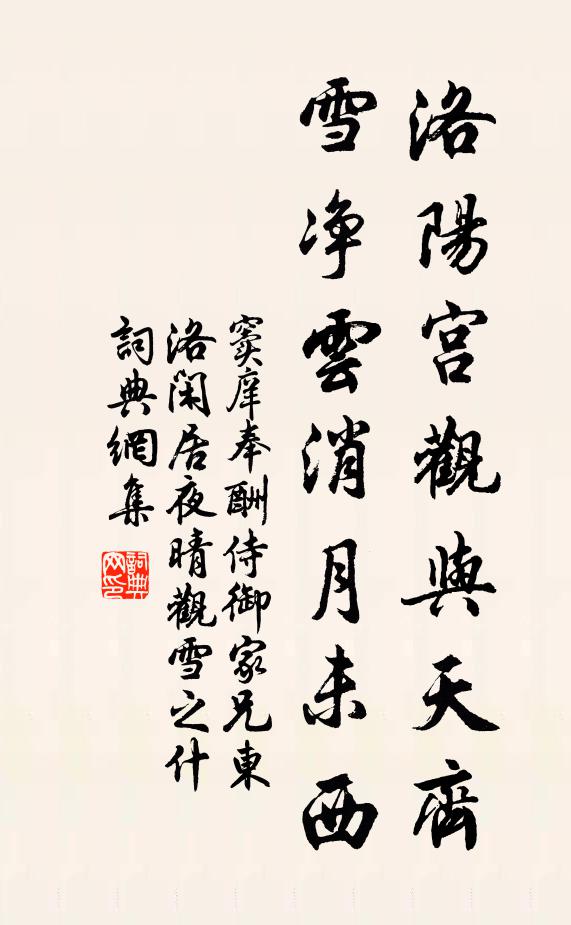 洛陽宮觀與天齊
雪净雲消月未西
竇庠奉酬侍御家兄東
洛閑居夜晴觀雪之什
詞典網集
詞典网印